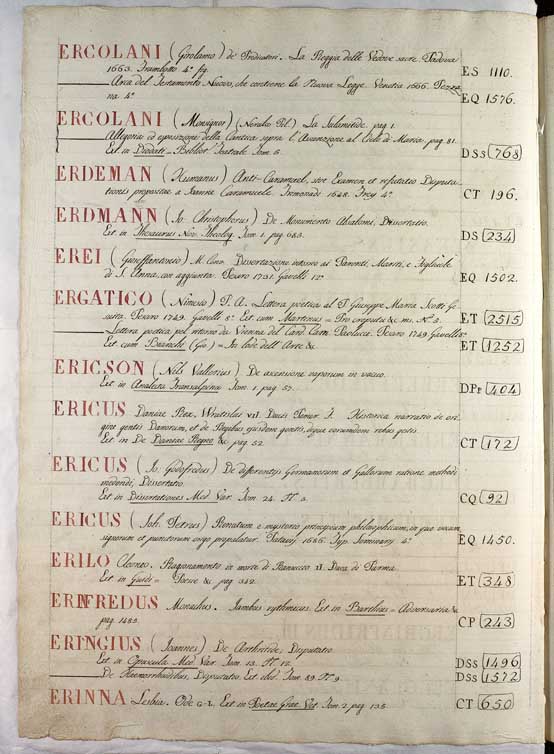 ERCOLANI (Girolamo) de' Traduttori. La Reggia delle Vedove sacre Padova
1663. Frambotto 4º fig. ES 1110.
Arca del Testamento Nuovo, che contiene la Nuova Legge Venetia 1666. Pezza
na 4º EQ 1576.
ERCOLANI (Monsignor) (Neralco P.A.) La Sulamitide. pag. 1.
Allegoria ed esposizione della Cantica sopra l'Assunzione al Cielo di Maria, pag. 81.
Est in Diodati = Bibliot. Teatrale Tom. 6. DSs 768
ERDEMAN (Humanus) Anti-Caramuel, sive Examen et refutatio Disputa-
tionis propositae a Joanne Caramuele. Trimonadi 1648. Frey 4º CT 196.
ERDMANN (Jo. Christophorus) De Monumento Absalomi, Dissertatio.
Est in Thesaurus Nov. Theolog. Tom. 1. pag. 683. DS 234
EREI (Gioseffantonio) M. Conv. Dissertazione intorno ai Parenti, Mariti, e Figliuole
di S. Anna, con aggiunta. Pesaro 1731. Gavelli 12º EQ 1502.
ERGATICO (Nimesio) P. A. Lettera poetica al P. Giuseppe Maria Scotti Ge
suita. Pesaro 1749. Gavelli 8º Est cum Martinus = Pro crepatu & ms. Nº 3. ET 2515
Lettera poetica pel ritorno da Vienna del Card. Cam. Paolucci. Pesaro 1749. Gavelli 8º
Est cum Baruchi (Gio) = In lode dell'Arte & ET 1252
ERICSON (Nils Vallerius) De ascensione vaporum in vacuo.
Est in Analecta Transalpina Tom. 1. pag. 57. DPp 404
ERICUS Daniae Rex. Wratislai VII. Ducis Pomer. F. Historica narratio de ori
gine gentis Danorum, et de Regibus ejusdem gentis, deque eorumdem rebus gestis.
Est in De Daniae Regno & pag. 52. CT 172
ERICUS (Jo. Godofredus) De differentiis Germanorum et Gallorum ratione methodi
medendi, Dissertatio.
Est in Dissertationes Med. Var. Tom. 24. Nº 3. CQ 92
ERICUS (Joh. Petrus) Renatum e mysterio principium philologicum, in quo vocum
signorum et punctorum origo propalatur. Patavii, 1686. Typ. Seminary 4º EQ 1450.
ERILO Cleoneo. Ragionamento in morte di Ranuccio II. Duca di Parma.
Est in Guidi = Poesie &. pag. 342. ET 348
ERINFREDUS Monachus. Iambus rythmicus. Est in Barthius = Adversaria &
pag. 1483. CP 243
ERINGIUS (Joannes) De Arthritide, Disputatio.
Est in Opuscula Med. Var. Tom. 13. Nº 12. DSs 1496
De Haemorrhoidibus, Disputatio. Est ibid. Tom. 89. Nº 9. DSs 1572
ERINNA Lesbia. Ode G-L. Est in Poetae Grae. Vet. Tom. 2. pag. 135. CT 650